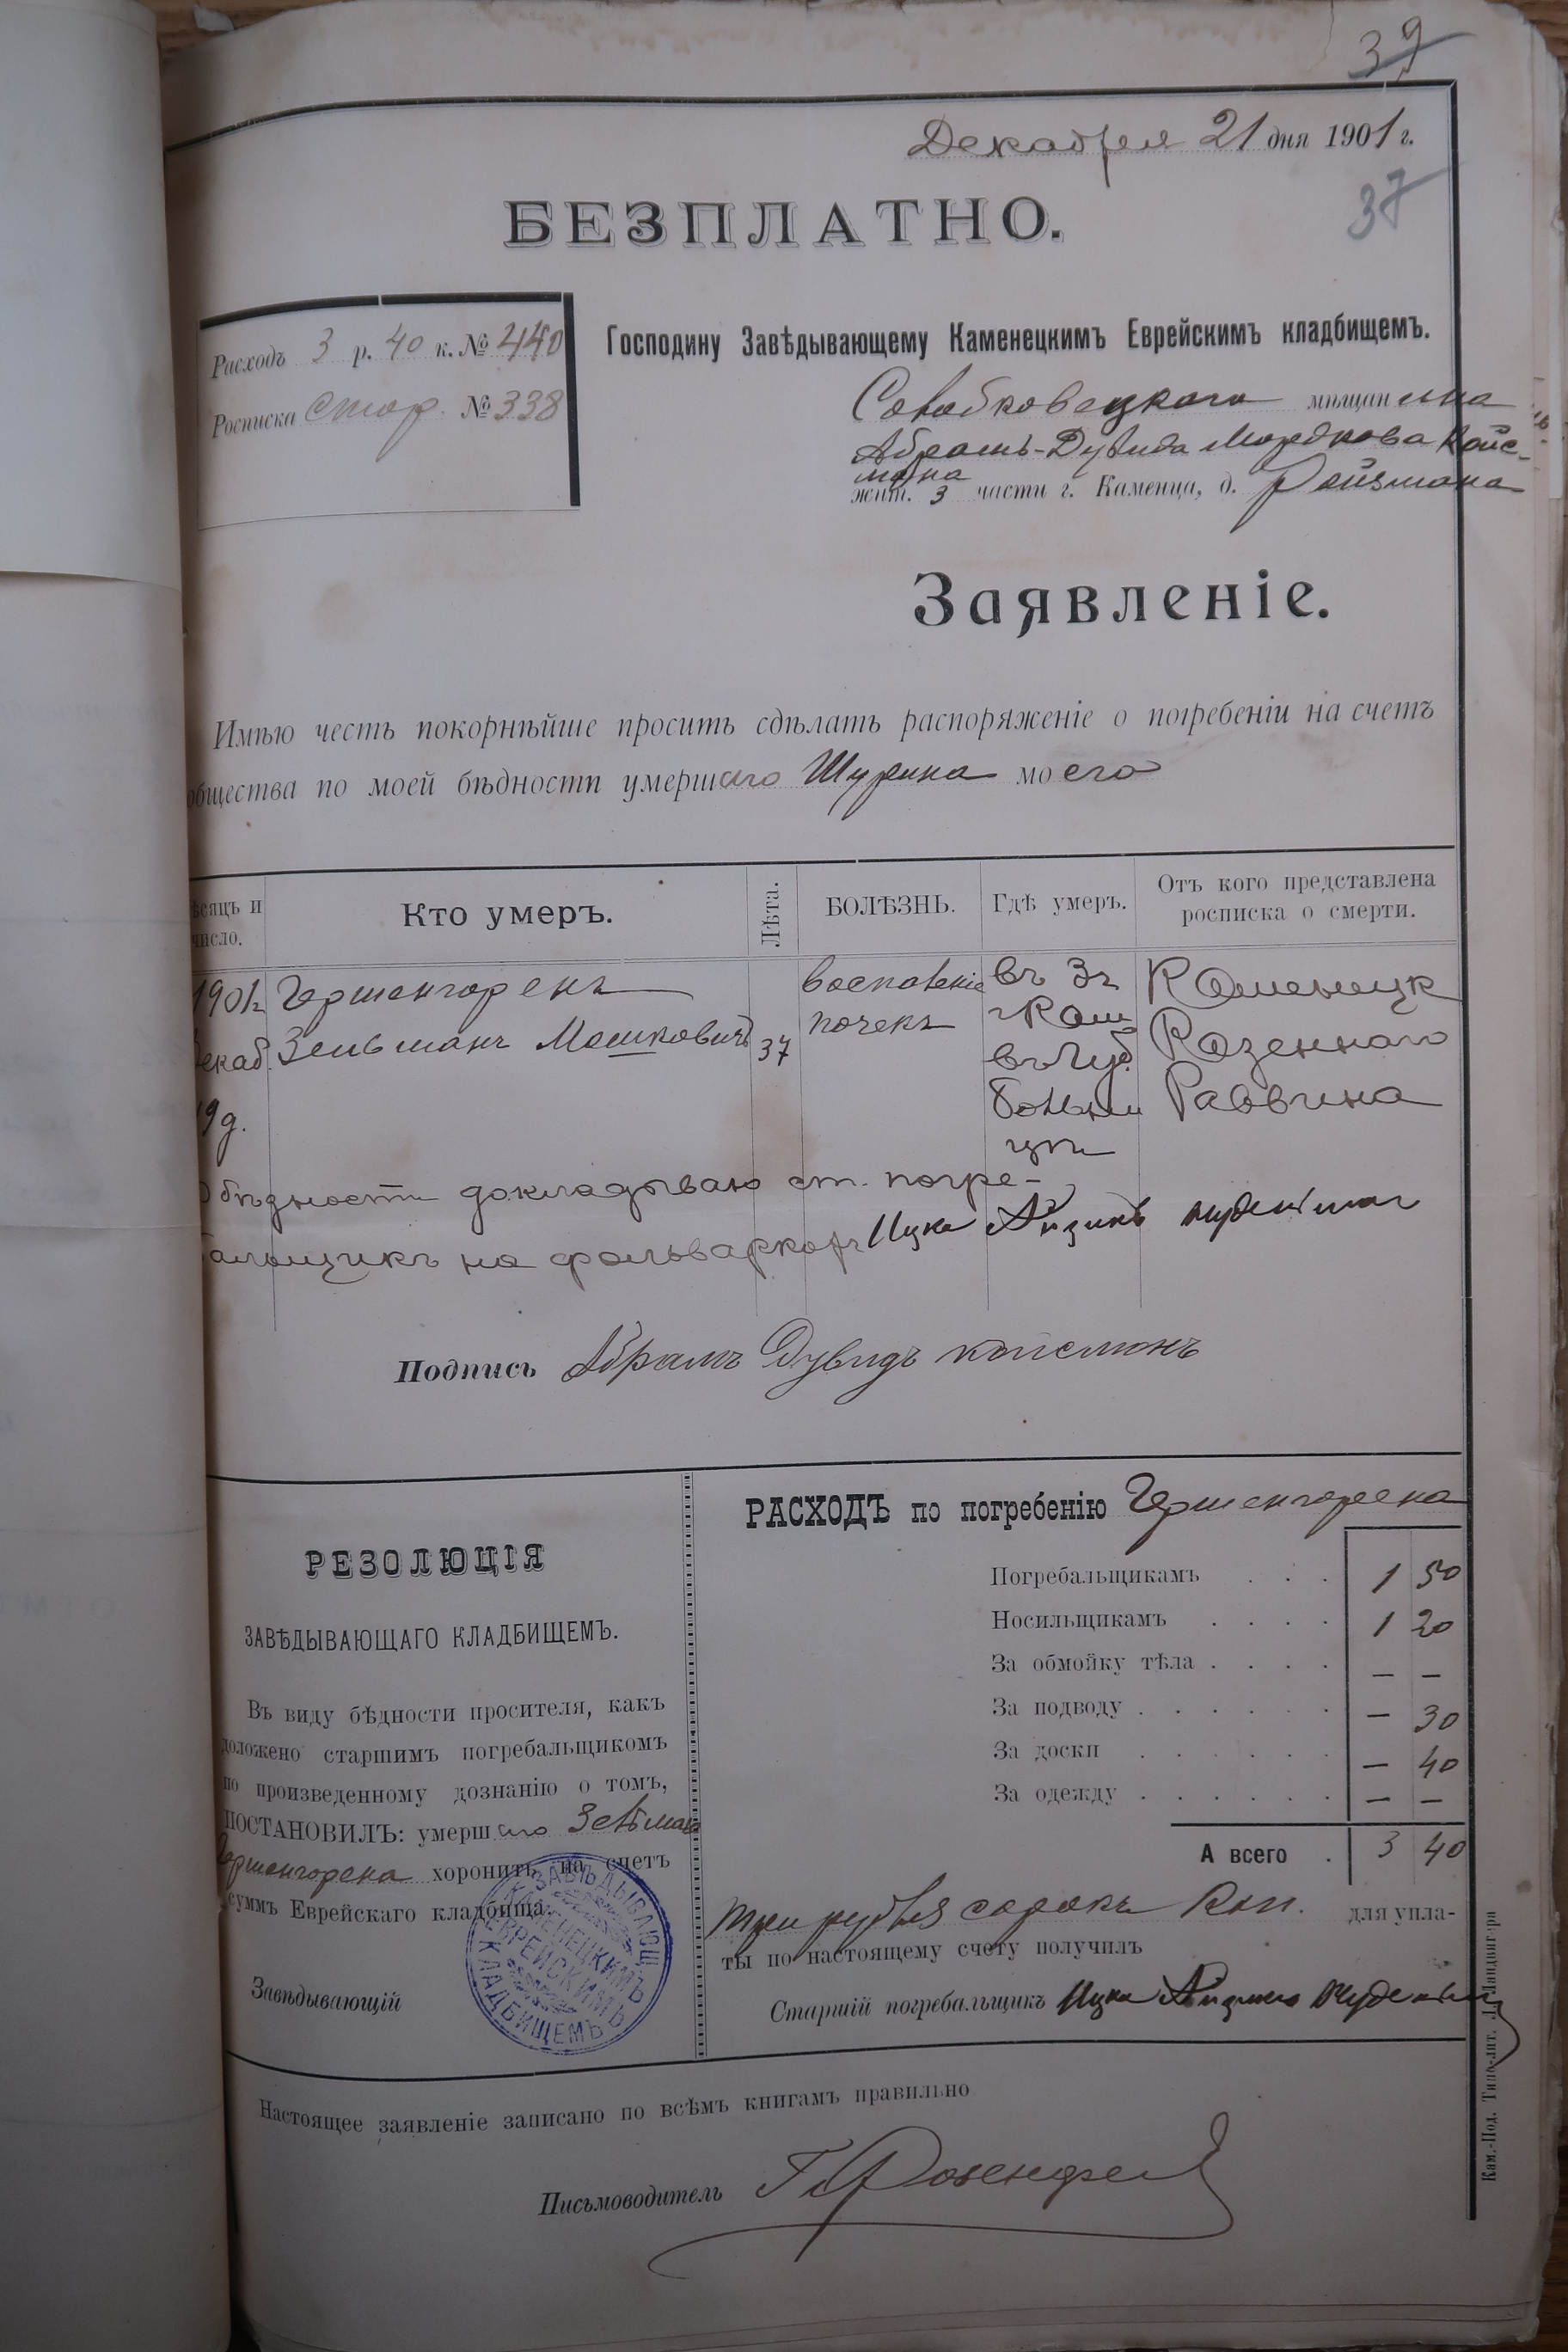 39
Декабря 21 дня 1901 г.
37
БЕЗПЛАТНО.
Расходъ 3 р. 40 к. № 440
Росписка стор. № 338
Господину Завѣдывающему Каменецкимъ Еврейскимъ кладбищемъ.
мѣщанина
Абрамъ-Дувида Мордкова Койс-
мана
жит. 3 части г. Каменца, д. Ройзмана
Заявленіе.
Имѣю честь покорнѣйше просить сдѣлать распоряженіе о погребеніи на счетъ
общества по моей бѣдности умершаго Шурина моего
ѣсяцъ и число.
Кто умеръ.
Лѣта.
БОЛѢЗНЬ.
Гдѣ умеръ.
Отъ кого представлена росписка о смерти.
1901г
Гершенгоренъ
воспаленіе
въ 3ч
Каменецк
декаб.
Зельманъ Мошковичъ
37
почекъ
гКам
Казеннаго
19д.
въ Губ.
Раввина
больни
цѣ
О бѣдности докладываю ст. погре-
бальщикъ на фольваркахъ Ицко Айзикъ
Подпись Абрамъ Дувидъ койсманъ
РЕЗОЛЮЦІЯ
ЗАВѢДЫВАЮЩАГО КЛАДБИЩЕМЪ.
Въ виду бѣдности просителя, какъ
доложено старшимъ погребальщикомъ
по произведенному дознанію о томъ,
ПОСТАНОВИЛЪ: умершаго Зельмана
Гершенгорена хоронить на счетъ
суммъ Еврейскаго кладбища.
Завѣдывающій
ЗАВѢДЫВАЮЩ. КАМЕНЕЦКИМЪ ЕВРЕЙСКИМЪ КЛАДБИЩЕМЪ
РАСХОДЪ по погребенію Гершенгорена
Погребальщикамъ . . . 1 50
Носильщикамъ . . . . 1 20
За обмойку тѣла . . . . — —
За подводу . . . . . . — 30
За доски . . . . . . — 40
За одежду . . . . . . — —
А всего . 3 40
Три рубля сорокъ Коп. для упла-
ты по настоящему счету получилъ
Старшій погребальщикъ Ицко Айзикъ
Настоящее заявленіе записано по всѣмъ книгамъ правильно
Письмоводитель Розенфел
Кам.-Под. Типо-лит. Д. Ландвигера